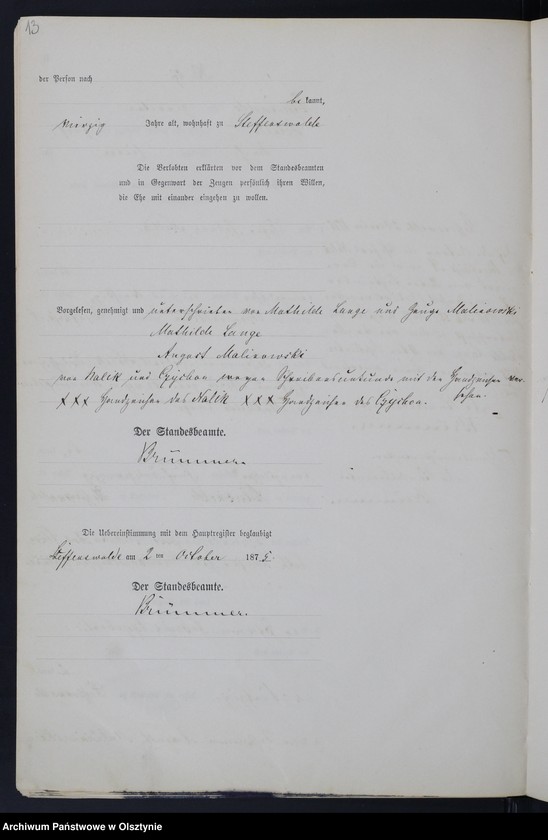 13
der Person nach
be kannt,
vierzig Jahre alt, wohnhaft zu Steffenswalde
Die Verlobten erklärten vor dem Standesbeamten
und in Gegenwart der Zeugen persönlich ihren Willen,
die Ehe mit einander eingehen zu wollen.
Vorgelesen, genehmigt und unterschrieben von Mathilde Lange und Zeuge Malinowski
Mathilde Lange
August Malinowski
von Nalik und wegen Schreibensunkunde mit den Handzeichen ver-
sehen.
XXX Handzeichen des Nalik XXX Handzeichen des
Der Standesbeamte.
Brümmer.
Die Uebereinstimmung mit dem Hauptregister beglaubigt
Steffenswalde am 2 ten October 1875.
Der Standesbeamte.
Brümmer.
Archiwum Państwowe w Olsztynie